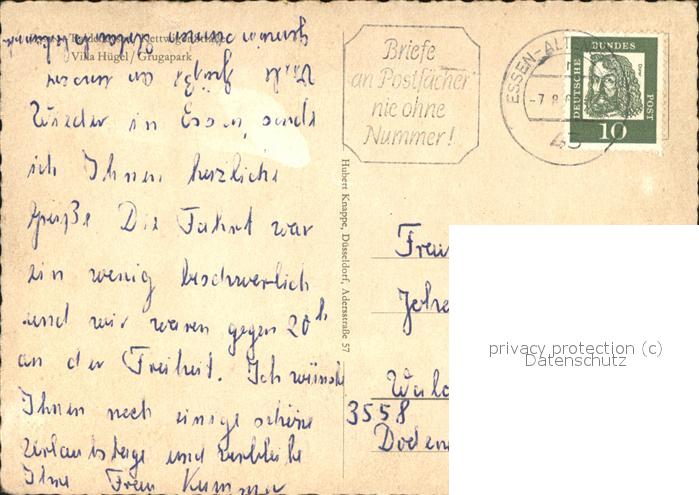 Villa Hügel / Grugapark
Wieder in Essen, sende
ich Ihnen herzliche
Grüße Die Fahrt war
ein wenig beschwerlich
und wir waren gegen 20h
an der Freiheit. Ich wünsche
Ihnen noch einige schöne
Urlaubstage und verbleibe
Ihre Frau Kummer
Hubert Knappe, Düsseldorf, Adersstraße 57
Briefe
an Postfächer
nie ohne
Nummer!
ESSEN-ALT
-7.8.
43
DEUTSCHE BUNDES POST
Dürer
10
Frau
Wald
3558
Doden
privacy protection (c)
Datenschutz